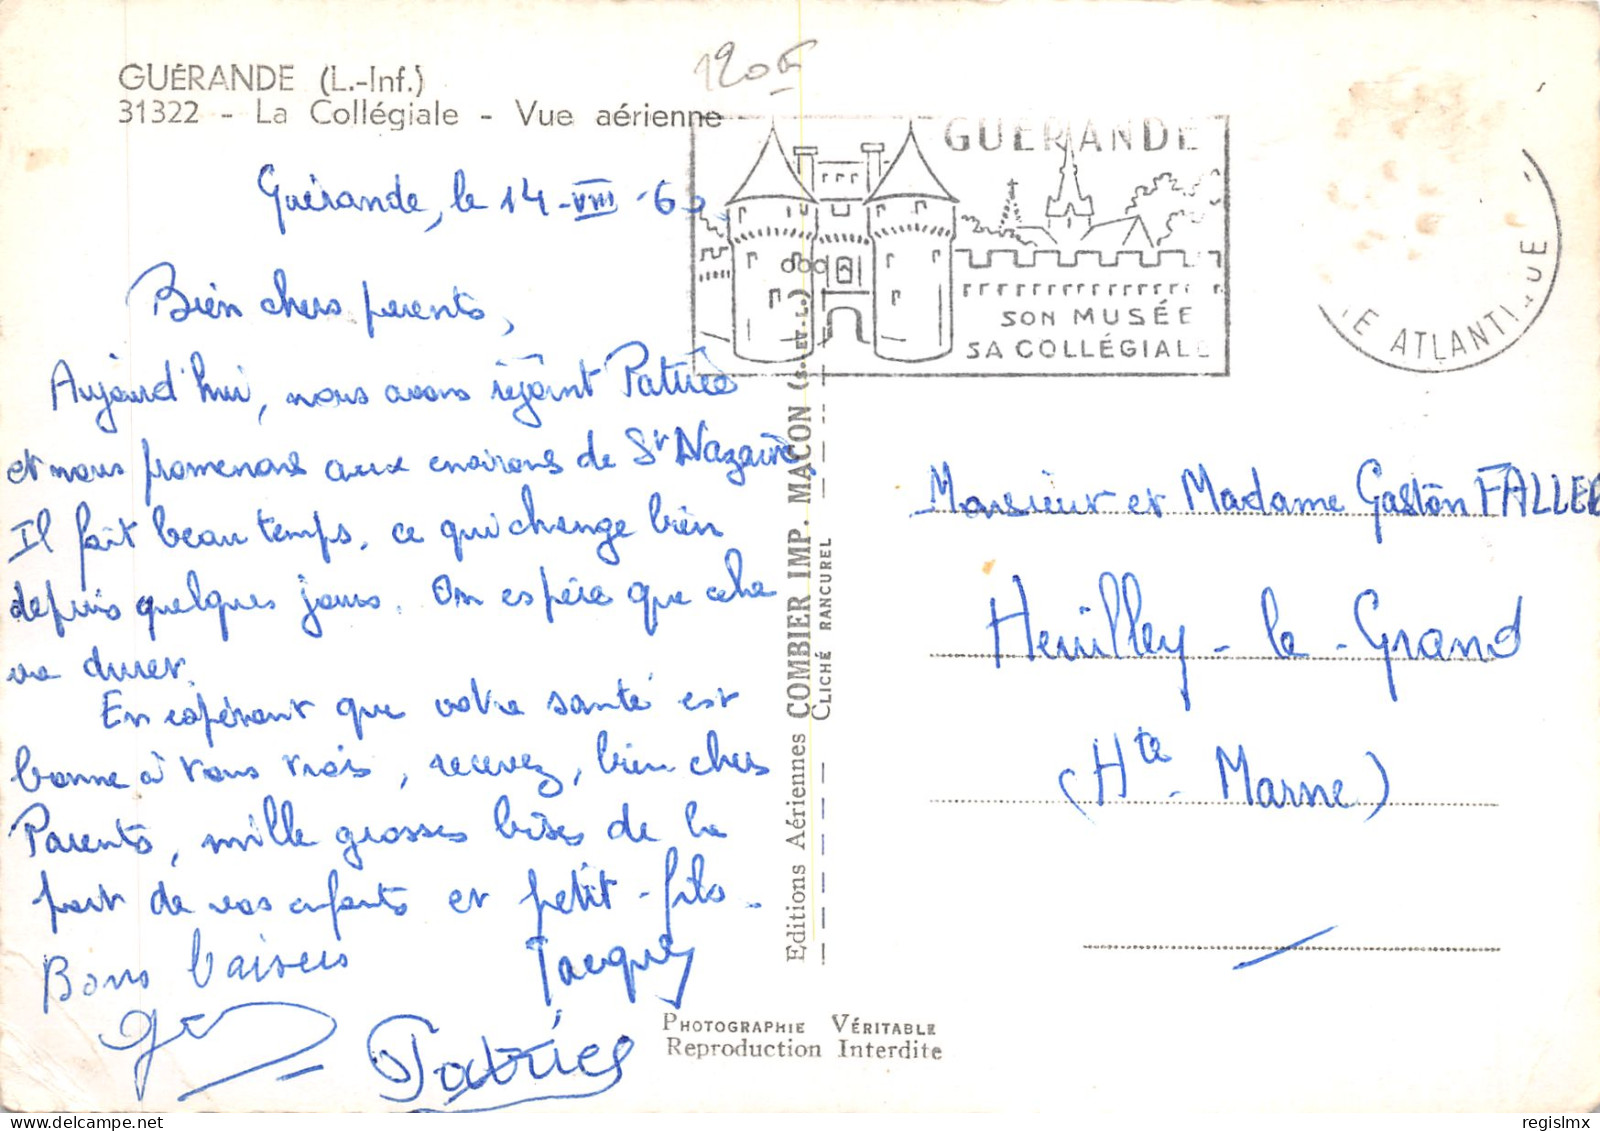 GUÉRANDE (L.-Inf.)
31322 - La Collégiale - Vue aérienne
120F
Guérande, le 14-VIII-60
Bien chers parents,
Aujourd'hui, nous avons rejoint Patrice
et nous promenons aux environs de St Nazaire,
Il fait beau temps, ce qui change bien
depuis quelques jours. On espère que cela
va durer.
En espérant que votre santé est
bonne à vous trois, recevez, bien chers
Parents, mille grosses bises de la
part de vos enfants et petit-fils.
Bons baisers
Jacques
Patrice
GUERANDE
SON MUSÉE
SA COLLÉGIALE
ATLANTIQUE
Editions Aériennes COMBIER IMP. MACON (S.-ET-L.)
CLICHÉ RANCUREL
PHOTOGRAPHIE VÉRITABLE
Reproduction Interdite
Monsieur et Madame Gaston
Heuilley-le-Grand
(Hte Marne)
regislmx